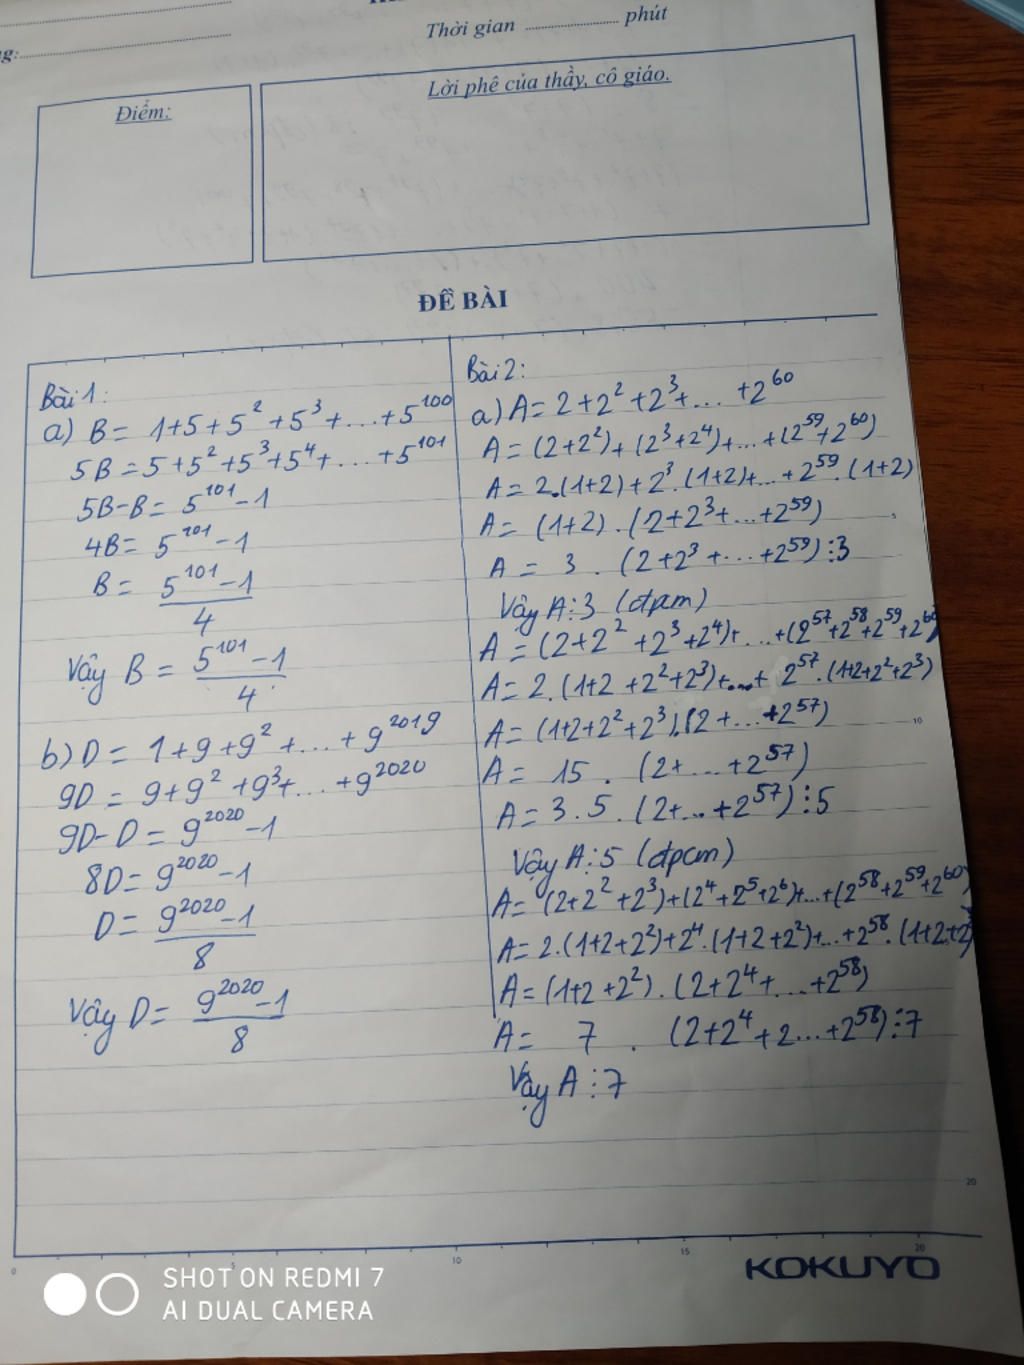 Thời gian ........................ phút
Điểm:
Lời phê của thầy, cô giáo.
ĐỀ BÀI
Bài 1:
a) B = 1+5+5²+5³+...+5¹⁰⁰
5B = 5+5²+5³+5⁴+...+5¹⁰¹
5B-B = 5¹⁰¹-1
4B = 5¹⁰¹-1
B = (5¹⁰¹-1)/4
Vậy B = (5¹⁰¹-1)/4
b) D = 1+9+9²+...+9²⁰¹⁹
9D = 9+9²+9³+...+9²⁰²⁰
9D-D = 9²⁰²⁰-1
8D = 9²⁰²⁰-1
D = (9²⁰²⁰-1)/8
Vậy D = (9²⁰²⁰-1)/8
Bài 2:
a) A = 2+2²+2³+...+2⁶⁰
A = (2+2²)+(2³+2⁴)+...+(2⁵⁹+2⁶⁰)
A = 2.(1+2)+2³.(1+2)+...+2⁵⁹.(1+2)
A = (1+2).(2+2³+...+2⁵⁹)
A = 3.(2+2³+...+2⁵⁹)⋮3
Vậy A⋮3 (đpcm)
A = (2+2²+2³+2⁴)+...+(2⁵⁷+2⁵⁸+2⁵⁹+2⁶⁰)
A = 2.(1+2+2²+2³)+...+2⁵⁷.(1+2+2²+2³)
A = (1+2+2²+2³).(2+...+2⁵⁷)
A = 15.(2+...+2⁵⁷)
A = 3.5.(2+...+2⁵⁷)⋮5
Vậy A⋮5 (đpcm)
A = (2+2²+2³)+(2⁴+2⁵+2⁶)+...+(2⁵⁸+2⁵⁹+2⁶⁰)
A = 2.(1+2+2²)+2⁴.(1+2+2²)+...+2⁵⁸.(1+2+2²)
A = (1+2+2²).(2+2⁴+...+2⁵⁸)
A = 7.(2+2⁴+2...+2⁵⁸)⋮7
Vậy A⋮7
5
10
20
0
5
10
15
20
KOKUYO
SHOT ON REDMI 7
AI DUAL CAMERA